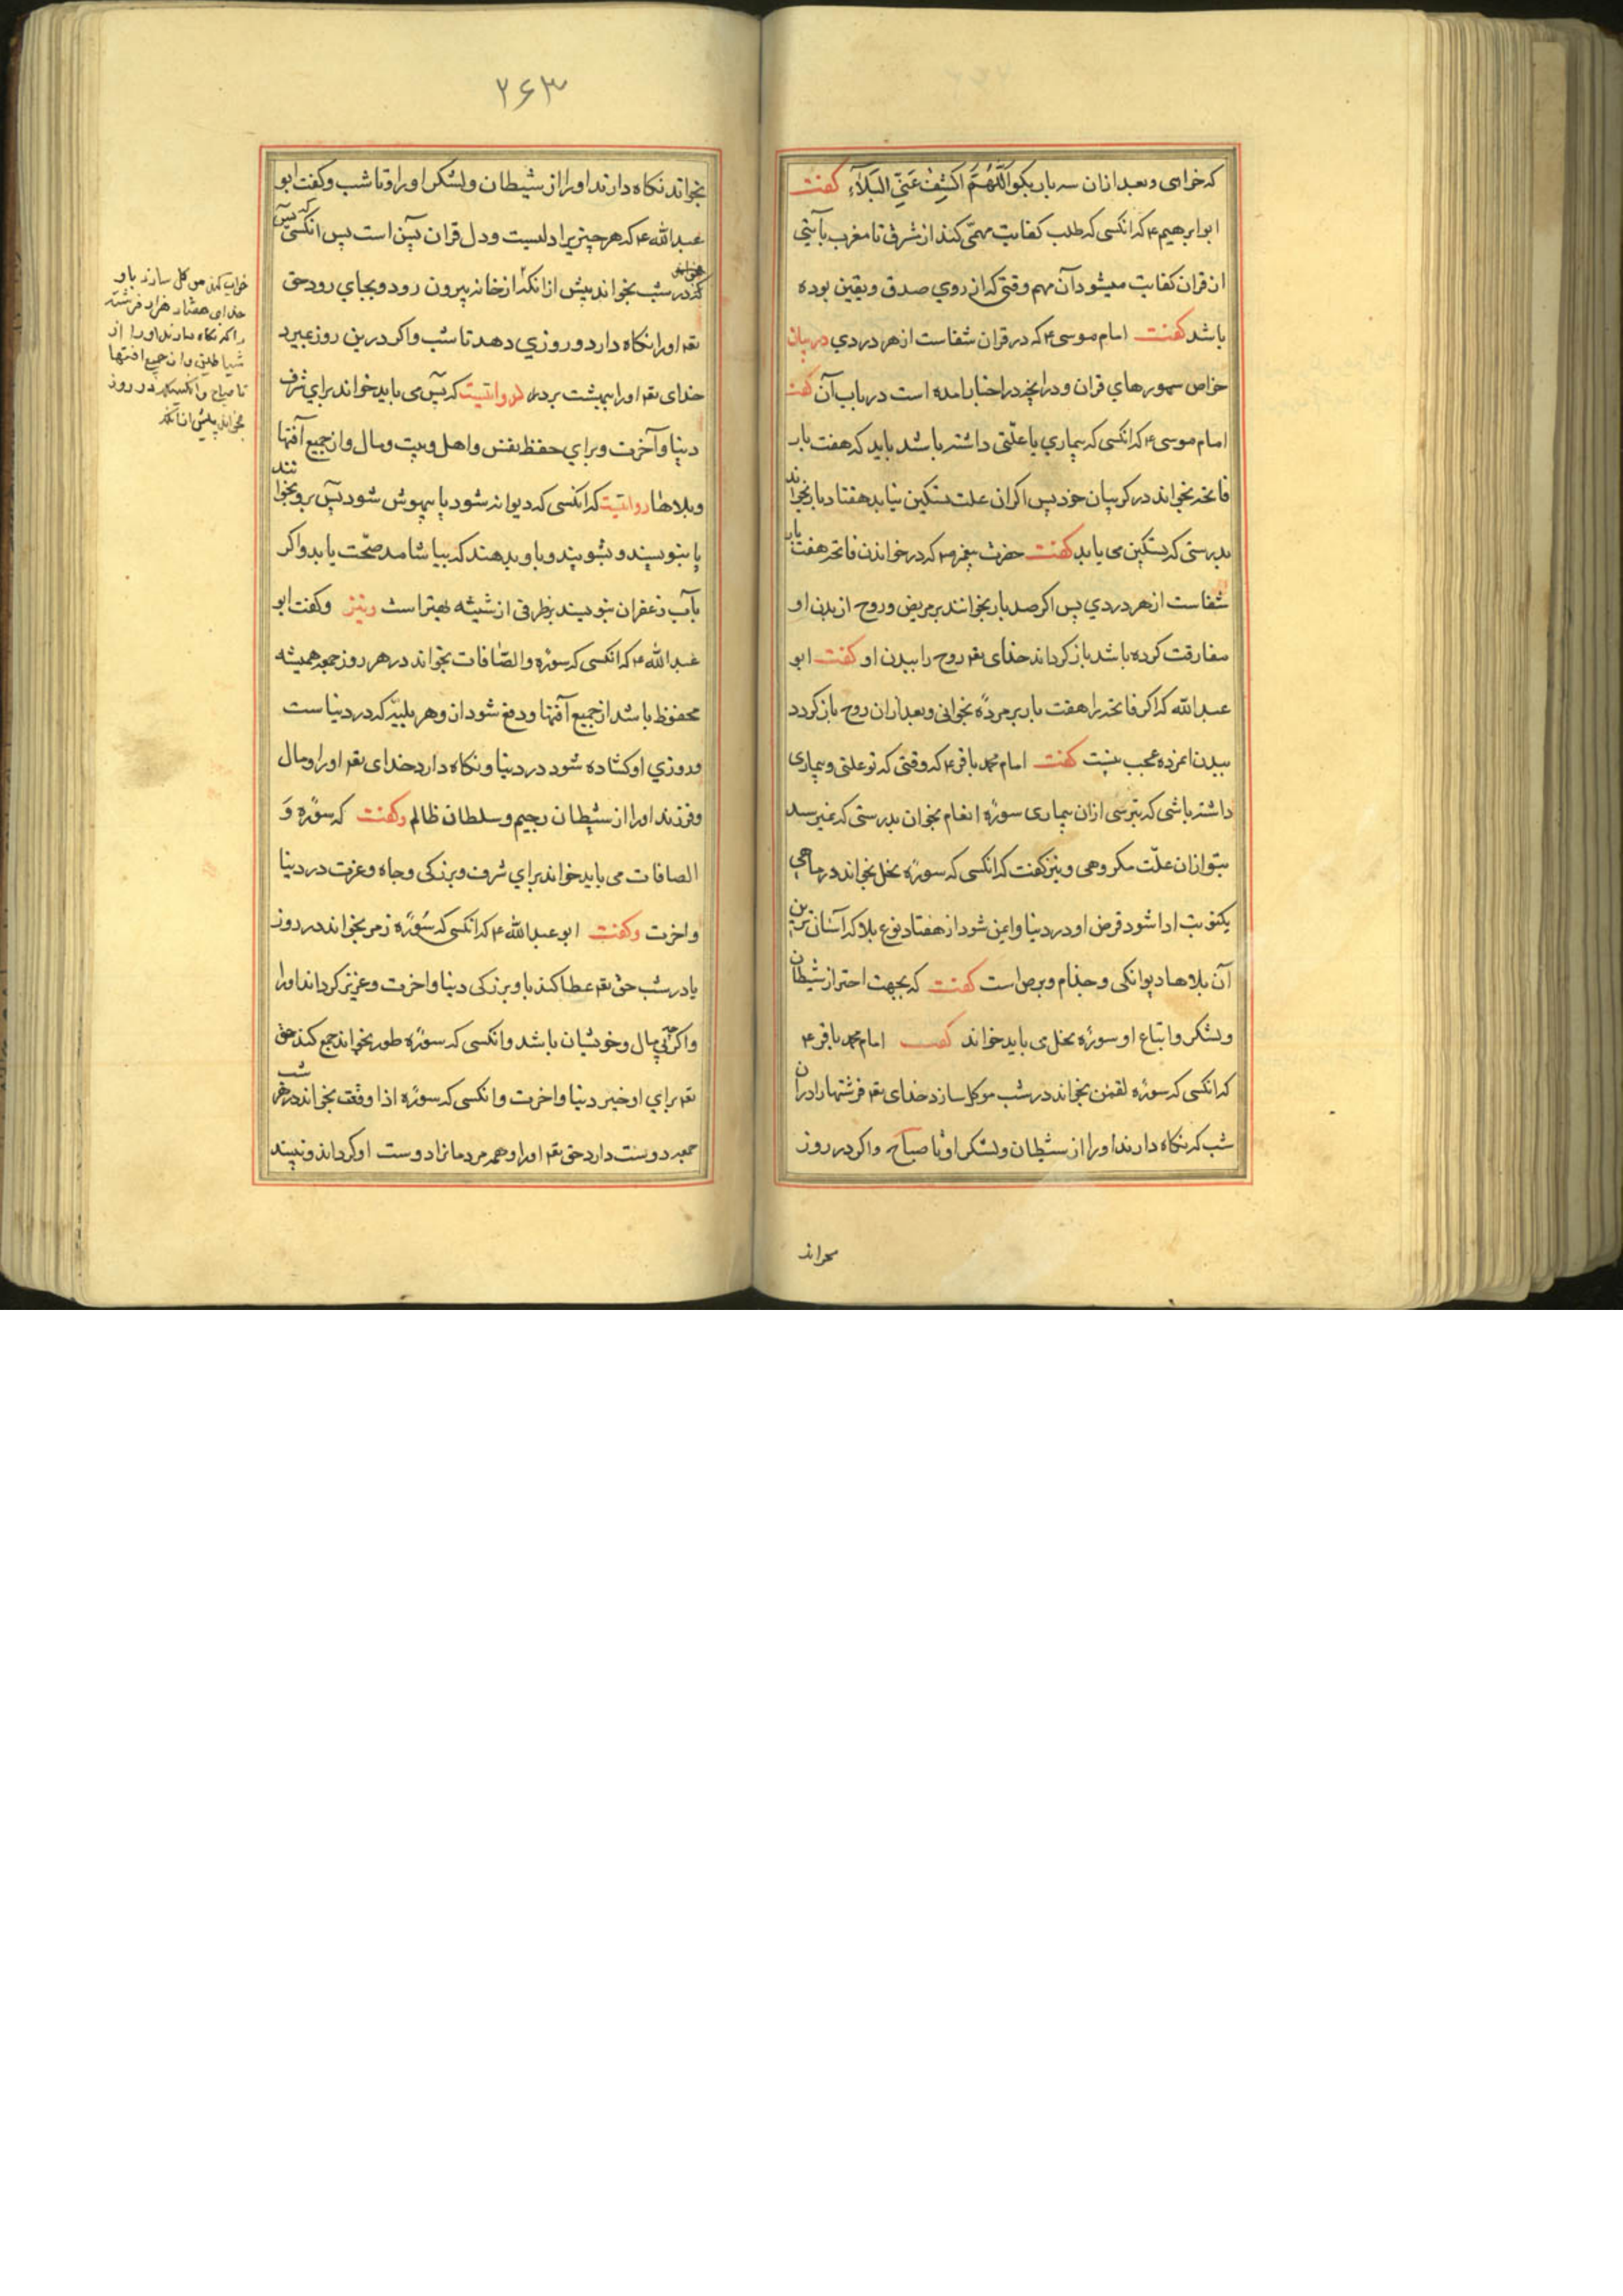 که خواهی و بعد ازان سه بار بکو اَللّٰهُمَّ اکْشِفْ عَنِّی البَلَآءِ کفت
ابو ابرهیم ع که انکسی که طلب کفایت مهمّی کند از شرق تا مغرب بآیتی
از قران کفایت میشود آن مهم وقتی که از روی صدق و یقین بوده
باشد کفت امام موسی ع که در قران شفاست از هر دردی در بیان
خواص سورهای قران و درانچه در اخبار امده است در باب آن کفت
امام موسی ع که انکسی که بیماری یا علّتی داشته باشد باید که هفت بار
فاتحه بخواند در کریبان خود پس اکر ان علت تسکین نیابد هفتاد بار بخواند
بدرستی که تسکین می یابد کفت حضرت پیغمبر ص که در خواندن فاتحه هفت بار
شفاست از هر دردی پس اکر صد بار بخوانند بر مریض و روح از بدن او
مفارقت کرده باشد باز کرداند خدای تعم روح را ببدن او کفت ابو
عبد الله که اکر فاتحه را هفت بار بر مردهٔ بخوانی و بعد ازان روح باز کردد
ببدن انمرده عجب نیست کفت امام محمد باقر ع که وقتی که تو علتی و بیماری
داشته باشی که بترسی ازان بیماری سورهٔ انعام بخوان بدرستی که نمیرسد
بتو ازان علّت مکروهی و نیز کفت که انکسی که سورهٔ نحل بخواند در ماهی
یکنوبت ادا شود قرض او در دنیا و ایمن شود از هفتاد نوع بلا که آسان ترین
آن بلاها دیوانکی و جذام و برص است کفت که بجهت احتراز شیطان
و لشکر و اتباع او سورهٔ نحل می باید خواند کفت امام محمد باقر ع
که انکسی که سورهٔ لقمن بخواند در شب موکل سازد خدای تعم فرشتها را دران
شب که نکاه دارند او را از شیطان و لشکر او تا صباح و اکر در روز
بخواند
۲۶۳
بخواند نکاه دارند او را از شیطان و لشکر او را و تا شب و کفت ابو
عبد الله ع که هر چیزیرا دلیست و دل قران یٓس است پس انکسی که یٓس
در شب بخواند پیش از انکه از خانه بیرون رود و بجای رود حق
تعم او را نکاه دارد و روزی دهد تا شب و اکر درین روز بمیرد
خدای تعم او را ببهشت برد و روایتیست که یٓس می باید خواند برای شرف
دنیا و آخرت و برای حفظ نفس و اهل و بیت و مال و از جمیع آفتها
و بلاها روایتیست که انکسی که دیوانه شود یا بیهوش شود یٓس برو بخوانند
یا بنویسند و بشویند و باو بدهند که بیاشامد صحّت یابد و اکر
بآب زعفران بنویسند بظرفی از شیشه بهتر است و نیز و کفت ابو
عبد الله ع که انکسی که سورهٔ والصّافات بخواند در هر روز جمعه همیشه
محفوظ باشد از جمیع آفتها و دفع شود ازو هر بلیّه که در دنیاست
و روزی او کشاده شود در دنیا و نکاه دارد خدای تعم او را و مال
و فرزند او را از شیطان رجیم و سلطان ظالم و کفت که سورهٔ وَ
الصافات می باید خواند برای شرف و بزرکی و جاه و عزت در دنیا
و اخرت و کفت ابو عبد الله ع که انکسی که سُورهٔ زمر بخواند در روز
یا در شب حق تعم عطا کند باو بزرکی دنیا و اخرت و عزیز کرداند او را
و اکرچه بی مال و خویشان باشد و انکسی که سورهٔ طور بخواند جمع کند حق
تعم برای او خیر دنیا و اخرت و انکسی که سورهٔ اذا وقعت بخواند در هر شب
جمعه دوست دارد حق تعم او را و همه مردمانرا دوست او کرداند و نبیند
خواب کند موکل سازد باو
خدای هشتاد هزار فرشته
را که نکاه دارند او را از
شیاطین و از جمیع افتها
تا صباح و انکسیکه در روز
بخواند پیش از انکه